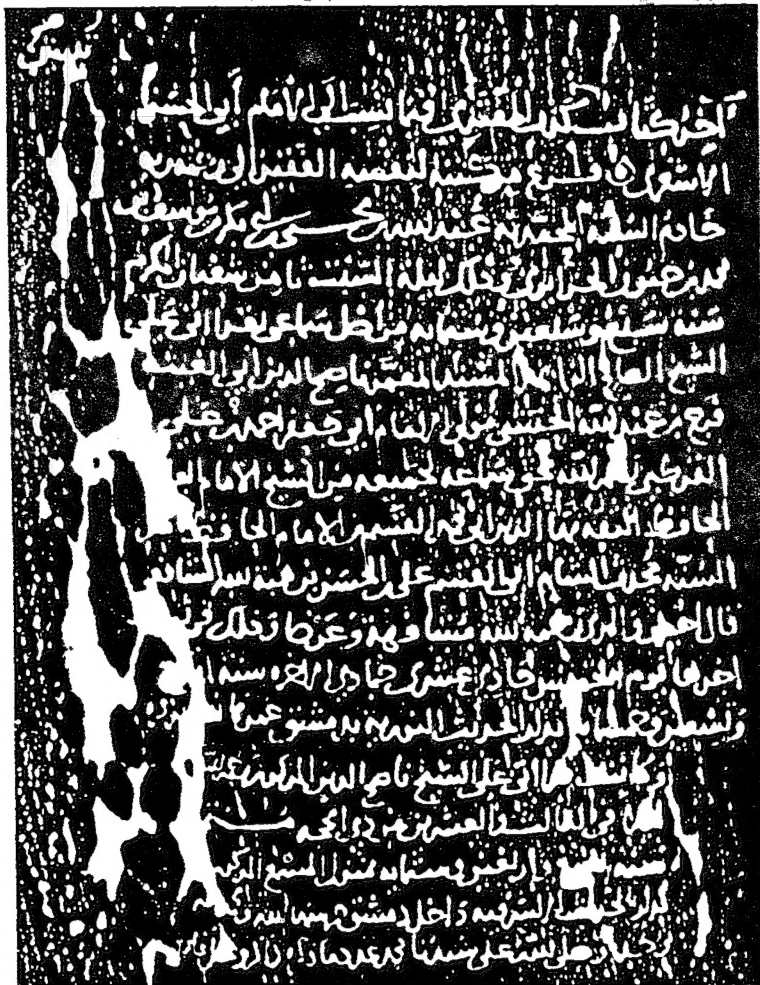 آخر كتاب كذب المفتري فيما نسب الى الامام أبي الحسن
الاشعري فرغ من كتبه لنفسه الفقير الى رحمة ربه
خادم السنة المحمدية عبد الله بن يحيى بن ابي بكر بن يوسف بن
محمد بن حيون الجزائري وذلك ليلة السبت ثامن شعبان المكرم
سنة سبع وسبعين وستمائة من اصل سماعي بقراتي على
الشيخ الصالح المسند المعمر ناصح الدين ابي الغيث
فرج بن عبد الله الحبشي مولى الامام ابي جعفر احمد بن علي
القرطبي رحمه الله بحق سماعه لجميعه من الشيخ الامام
الحافظ الثقة بهاء الدين ابي محمد القسم بن الامام الحافظ
السنة محدث الشام ابي القسم علي بن الحسن بن هبة الله الشافعي
قال اخبرنا والدي رحمه الله مشافهة وعرضا وذلك في
اخرها يوم الخميس حادي عشري جمادى الاخرة سنة
وتسعين وخمسمائة بدار الحديث النورية بدمشق عمرها
وكانت قراتي على الشيخ ناصح الدين المذكور
في الثالث والعشرين من ذي الحجة
سنة احدى وخمسين وستمائة بمنزل الشيخ
بدار الحديث الشرقية داخل دمشق
وصلى الله على سيدنا محمد